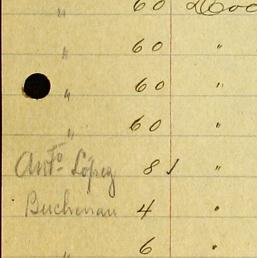 " 60
" 60 "
" 60 "
" 60 "
Anto López 81 "
Buchenau 4 "
" 6 "